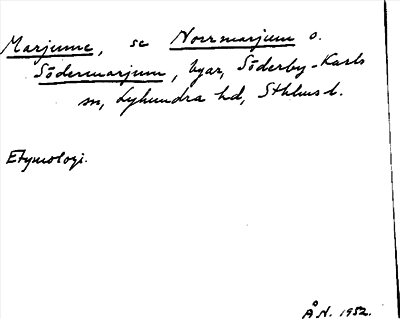 Marjume, se Norrmarjum o.
Södermarjum, byar, Söderby-Karls
sn, Lyhundra hd, Sthlms l.
Etymologi.
Å.N. 1952.